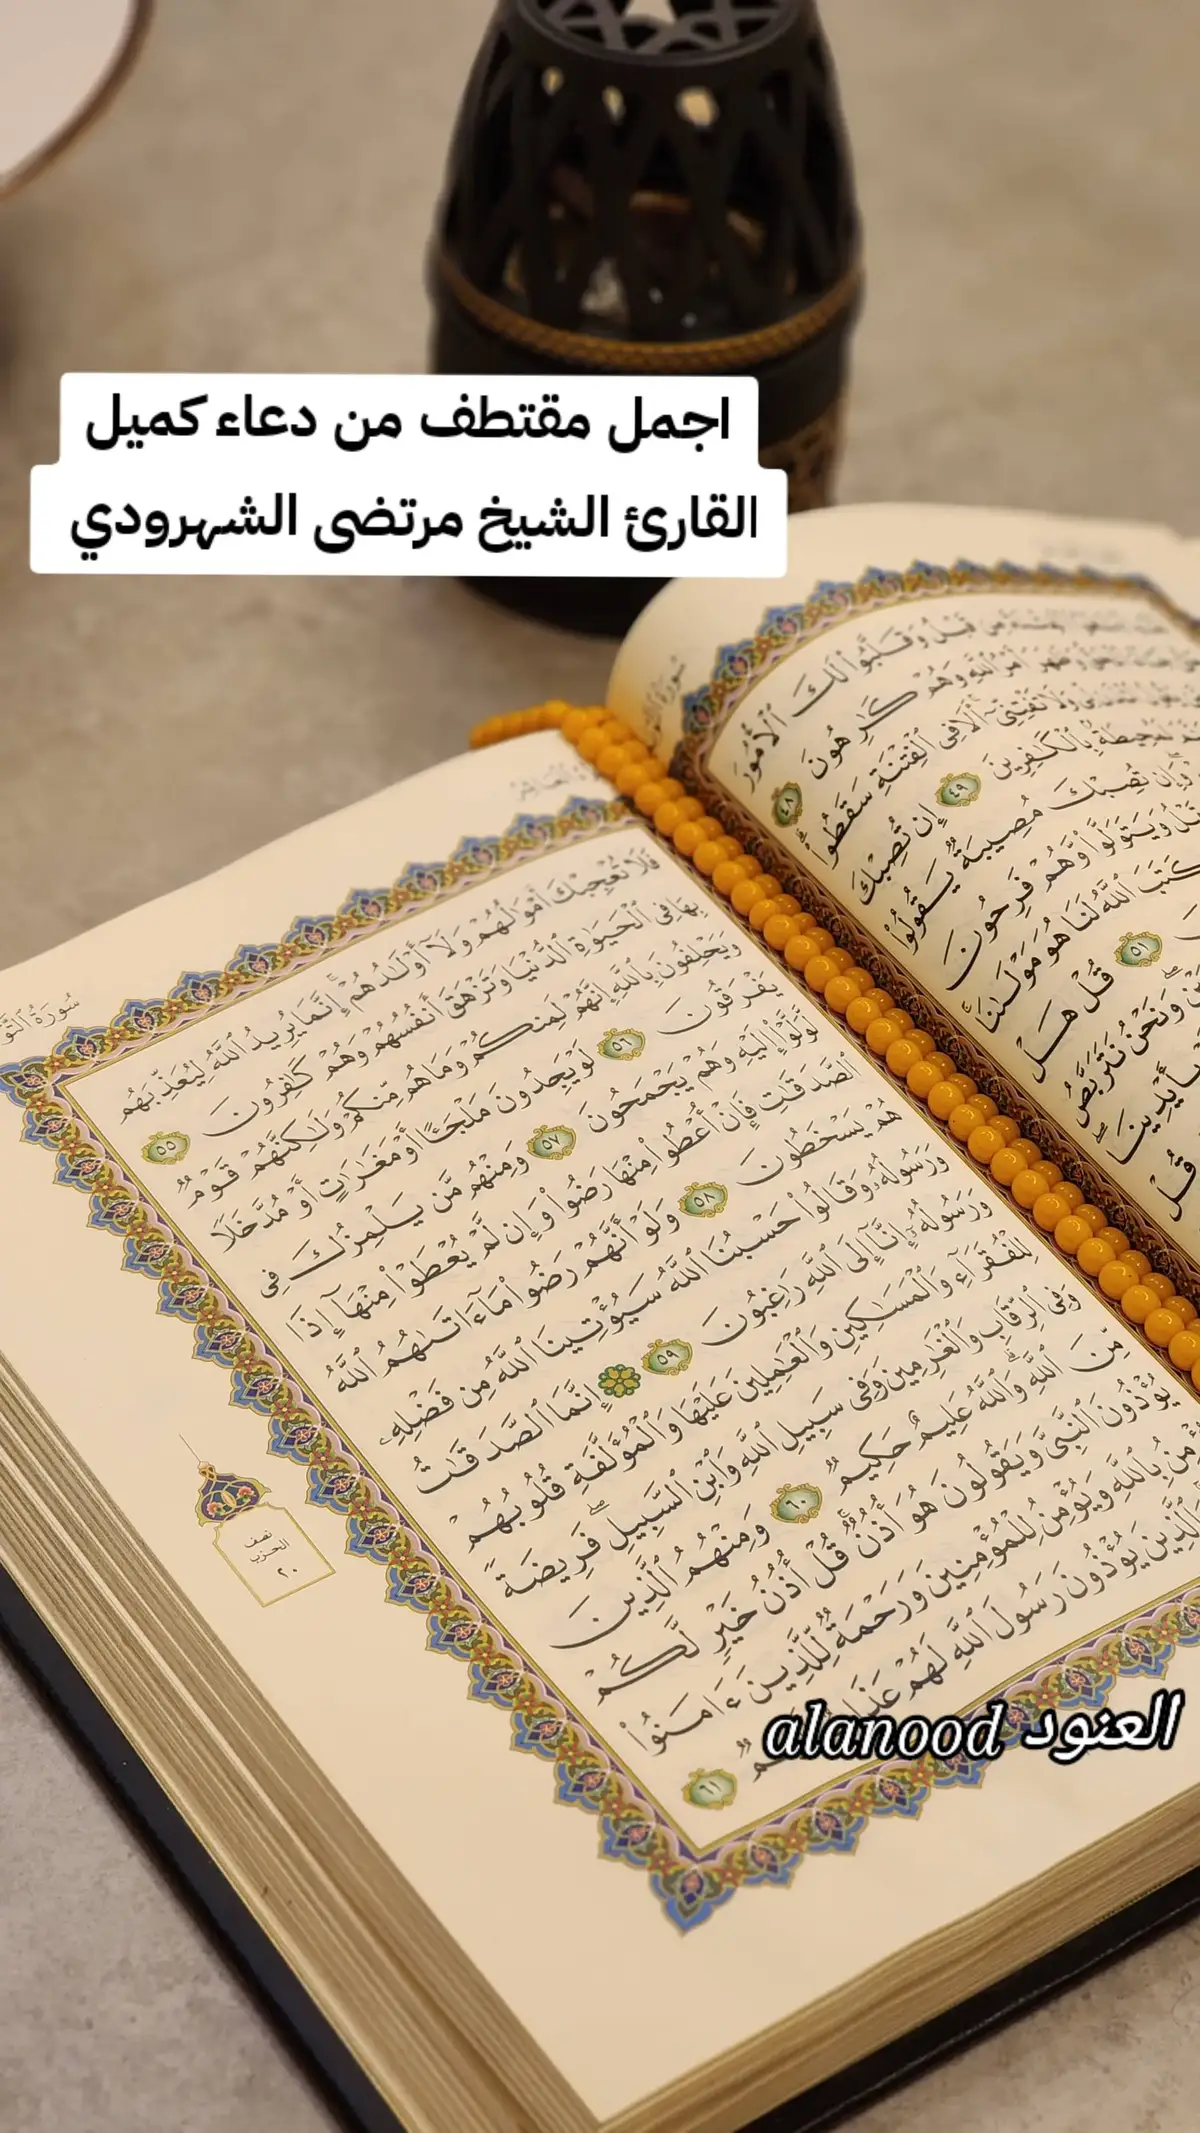 اجمل مقتطف من دعاء كميل
القارئ الشيخ مرتضى الشهرودي
قَبْلُ وَقَلَّبُوا۟ لَكَ ٱلْأُمُورَ
أَمْرُ ٱللَّهِ وَهُمْ كَٰرِهُونَ ٤٨
وَلَا تَفْتِنِّىٓ أَلَا فِى ٱلْفِتْنَةِ سَقَطُوا۟
لَمُحِيطَةٌۢ بِٱلْكَٰفِرِينَ ٤٩ إِن تُصِبْكَ
وَإِن تُصِبْكَ مُصِيبَةٌ يَقُولُوا۟
وَيَتَوَلَّوا۟ وَّهُمْ فَرِحُونَ
كَتَبَ ٱللَّهُ لَنَا هُوَ مَوْلَىٰنَا
٥١ قُلْ هَلْ
وَنَحْنُ نَتَرَبَّصُ
بِأَيْدِينَا
قُلْ
سُورَةُ التَّو
فَلَا تُعْجِبْكَ أَمْوَٰلُهُمْ وَلَآ أَوْلَٰدُهُمْ إِنَّمَا يُرِيدُ ٱللَّهُ لِيُعَذِّبَهُم
بِهَا فِى ٱلْحَيَوٰةِ ٱلدُّنْيَا وَتَزْهَقَ أَنفُسُهُمْ وَهُمْ كَٰفِرُونَ ٥٥
وَيَحْلِفُونَ بِٱللَّهِ إِنَّهُمْ لَمِنكُمْ وَمَا هُم مِّنكُمْ وَلَٰكِنَّهُمْ قَوْمٌ
يَفْرَقُونَ ٥٦ لَوْ يَجِدُونَ مَلْجَـًٔا أَوْ مَغَٰرَٰتٍ أَوْ مُدَّخَلًا
لَّوَلَّوْا۟ إِلَيْهِ وَهُمْ يَجْمَحُونَ ٥٧ وَمِنْهُم مَّن يَلْمِزُكَ فِى
ٱلصَّدَقَٰتِ فَإِنْ أُعْطُوا۟ مِنْهَا رَضُوا۟ وَإِن لَّمْ يُعْطَوْا۟ مِنْهَآ إِذَا
هُمْ يَسْخَطُونَ ٥٨ وَلَوْ أَنَّهُمْ رَضُوا۟ مَآ ءَاتَىٰهُمُ ٱللَّهُ
وَرَسُولُهُۥ وَقَالُوا۟ حَسْبُنَا ٱللَّهُ سَيُؤْتِينَا ٱللَّهُ مِن فَضْلِهِۦ
وَرَسُولُهُۥٓ إِنَّآ إِلَى ٱللَّهِ رَٰغِبُونَ ٥٩ إِنَّمَا ٱلصَّدَقَٰتُ
لِلْفُقَرَآءِ وَٱلْمَسَٰكِينِ وَٱلْعَٰمِلِينَ عَلَيْهَا وَٱلْمُؤَلَّفَةِ قُلُوبُهُمْ
وَفِى ٱلرِّقَابِ وَٱلْغَٰرِمِينَ وَفِى سَبِيلِ ٱللَّهِ وَٱبْنِ ٱلسَّبِيلِ فَرِيضَةً
مِّنَ ٱللَّهِ وَٱللَّهُ عَلِيمٌ حَكِيمٌ ٦٠ وَمِنْهُمُ ٱلَّذِينَ
يُؤْذُونَ ٱلنَّبِىَّ وَيَقُولُونَ هُوَ أُذُنٌ قُلْ أُذُنُ خَيْرٍ لَّكُمْ
يُؤْمِنُ بِٱللَّهِ وَيُؤْمِنُ لِلْمُؤْمِنِينَ وَرَحْمَةٌ لِّلَّذِينَ ءَامَنُوا۟
وَٱلَّذِينَ يُؤْذُونَ رَسُولَ ٱللَّهِ لَهُمْ
٦١
نصف
الحزب
٢٠
العنود alanood